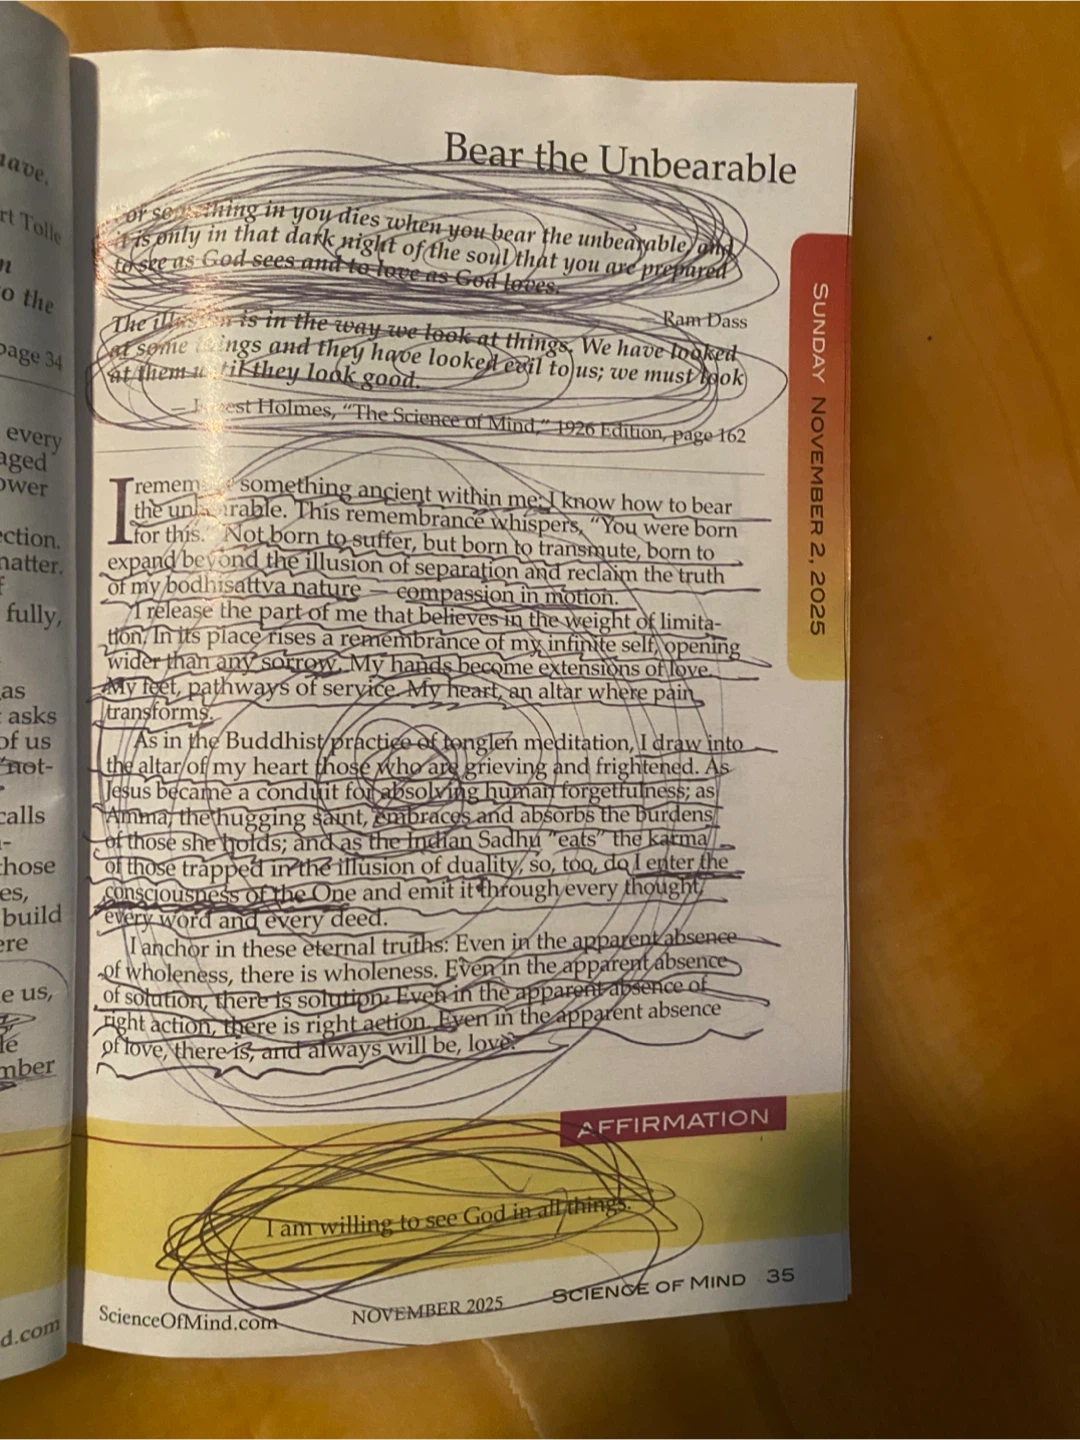 have.
rt Tolle
n
o the
page 34
every
aged
ower
ection.
matter.
f
fully,
as
asks
of us
"not-
calls
hose
es,
build
ere
e us,
le
mber
d.com
Bear the Unbearable
or something in you dies when you bear the unbearable, and
it is only in that dark night of the soul that you are prepared
to see as God sees and to love as God loves.
Ram Dass
The illusion is in the way we look at things. We have looked
at some things and they have looked evil to us; we must look
at them until they look good.
— Ernest Holmes, “The Science of Mind,” 1926 Edition, page 162
I remember something ancient within me: I know how to bear
the unbearable. This remembrance whispers, “You were born
for this.” Not born to suffer, but born to transmute, born to
expand beyond the illusion of separation and reclaim the truth
of my bodhisattva nature — compassion in motion.
I release the part of me that believes in the weight of limita-
tion. In its place rises a remembrance of my infinite self, opening
wider than any sorrow. My hands become extensions of love.
My feet, pathways of service. My heart, an altar where pain
transforms.
As in the Buddhist practice of tonglen meditation, I draw into
the altar of my heart those who are grieving and frightened. As
Jesus became a conduit for absolving human forgetfulness; as
Amma, the hugging saint, embraces and absorbs the burdens
of those she holds; and as the Indian Sadhu “eats” the karma
of those trapped in the illusion of duality, so, too, do I enter the
consciousness of the One and emit it through every thought,
every word and every deed.
I anchor in these eternal truths: Even in the apparent absence
of wholeness, there is wholeness. Even in the apparent absence
of solution, there is solution. Even in the apparent absence of
right action, there is right action. Even in the apparent absence
of love, there is, and always will be, love.
SUNDAY NOVEMBER 2, 2025
AFFIRMATION
I am willing to see God in all things.
ScienceOfMind.com
NOVEMBER 2025
SCIENCE OF MIND 35